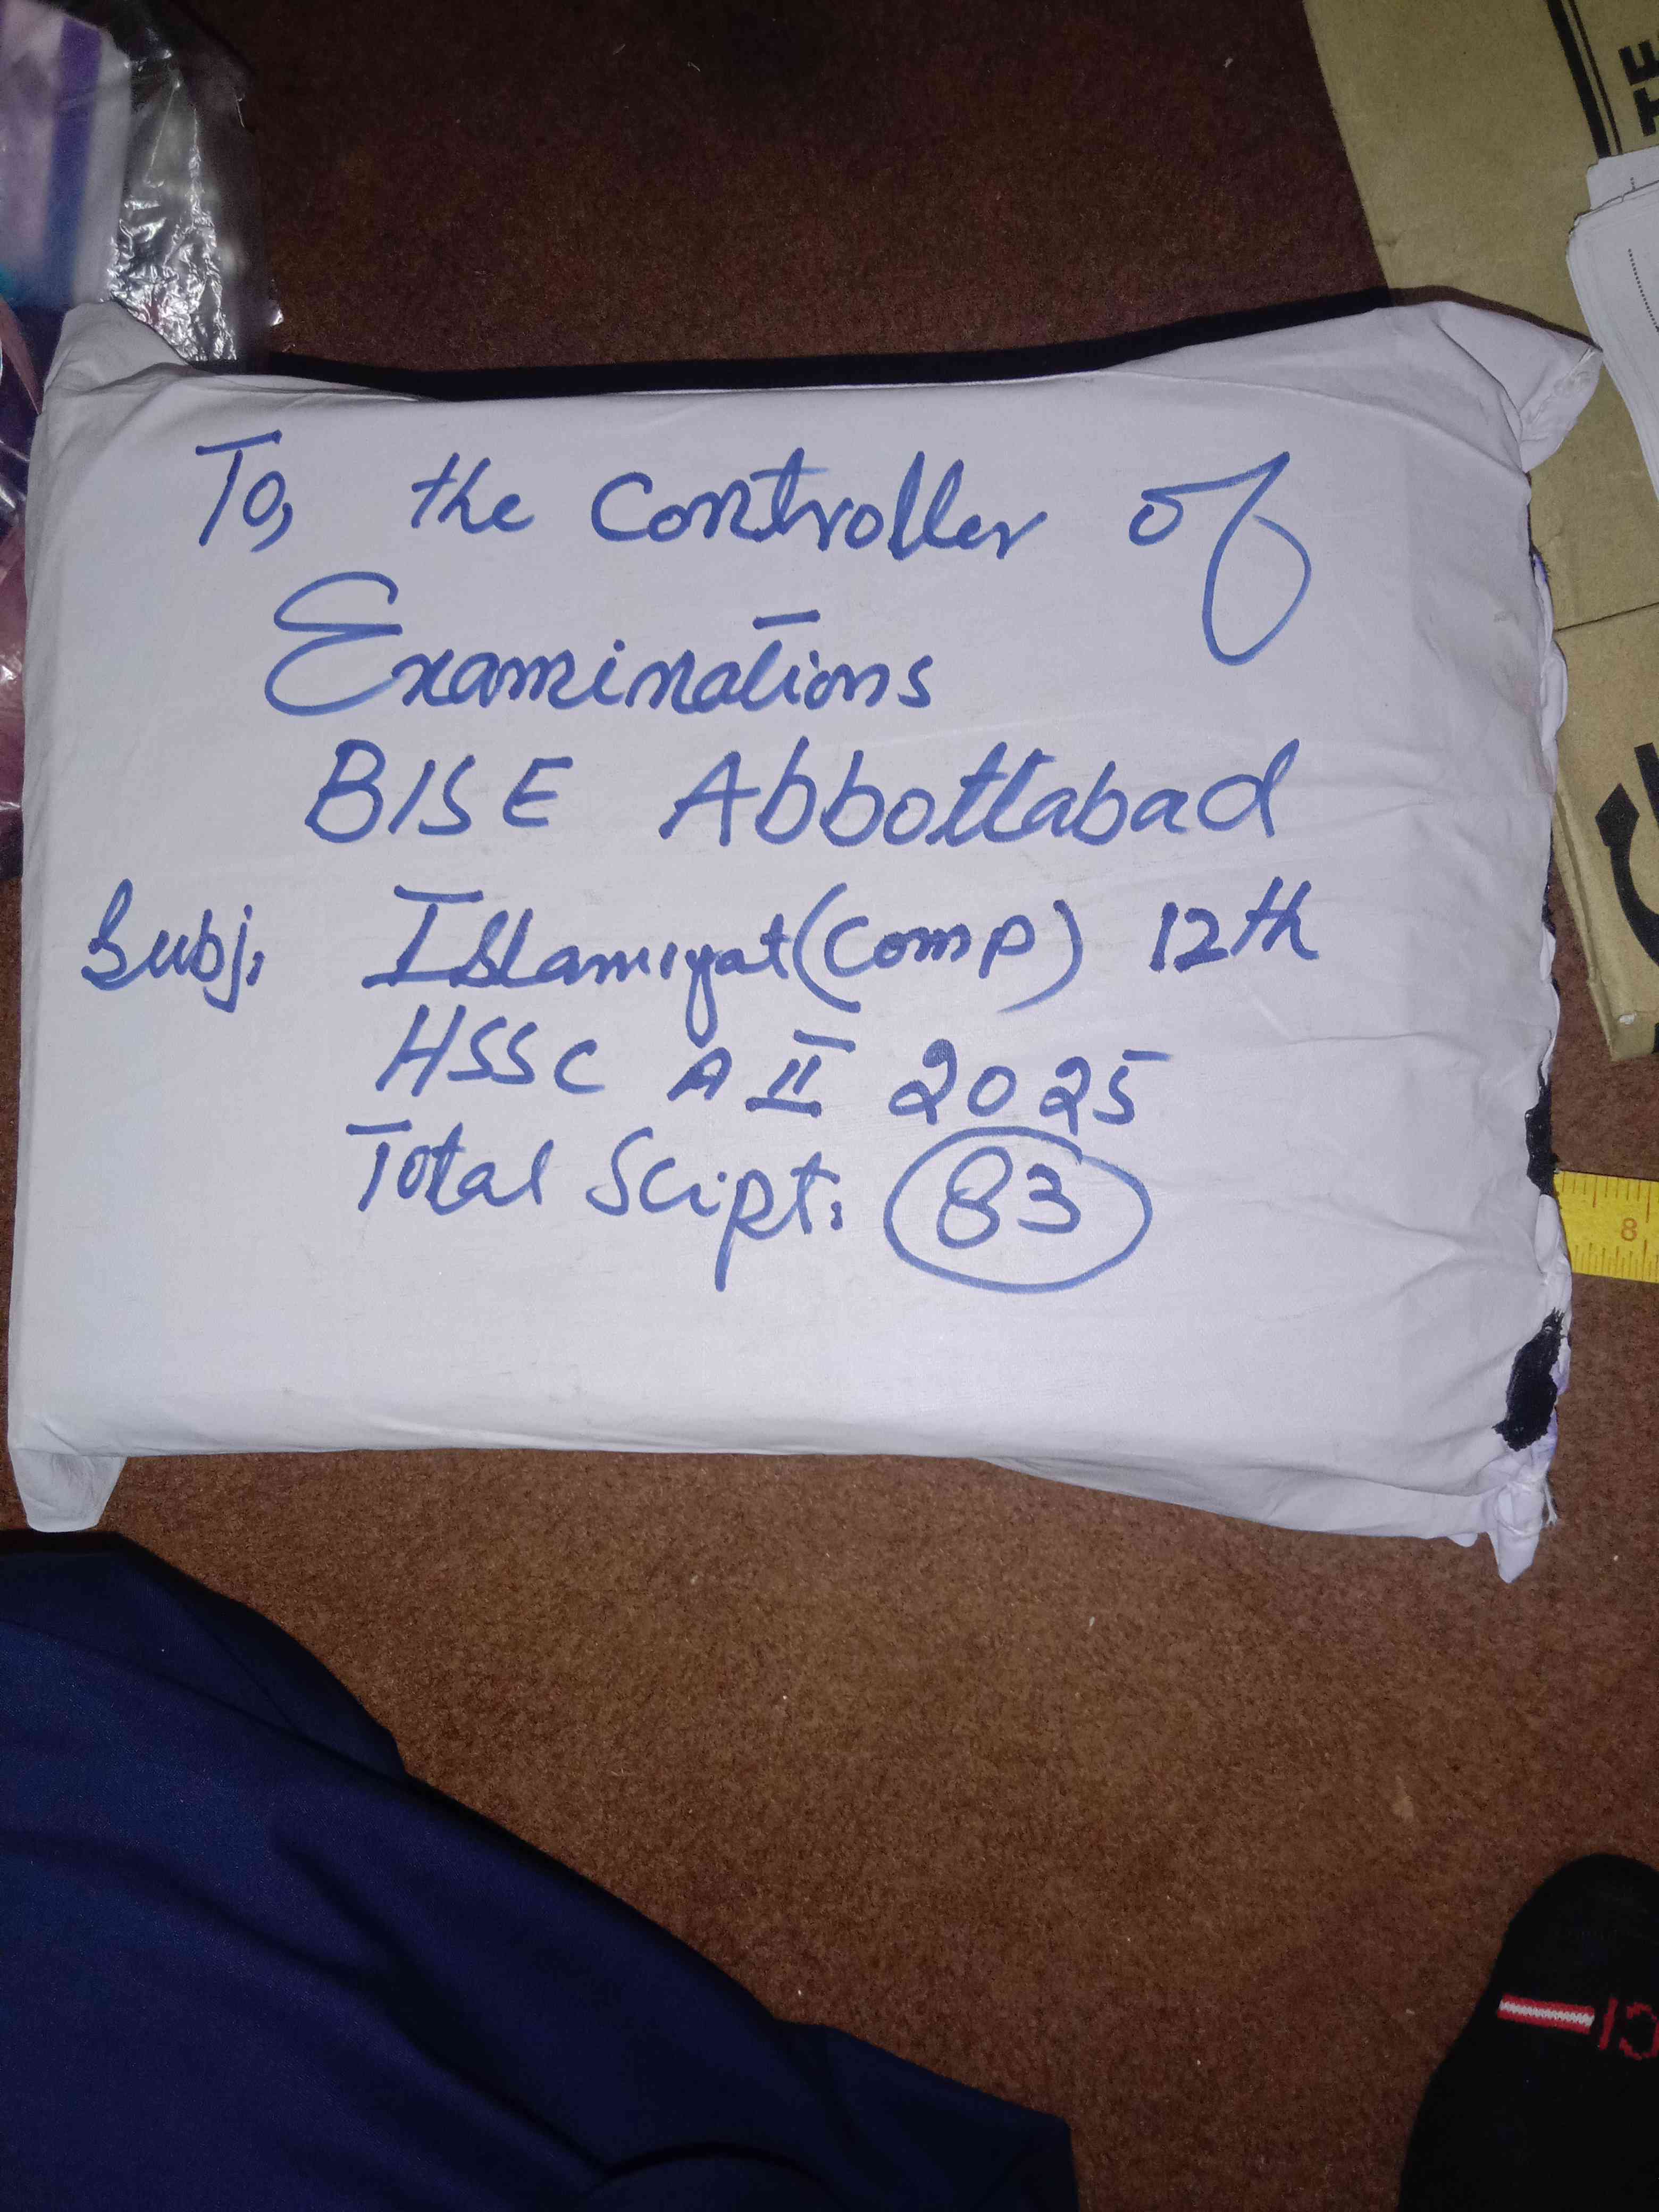 To, the Controller of
Examinations
BISE Abbottabad
Subj: Islamiyat (Comp) 12th
HSSC A II 2025
Total Script: 83
8